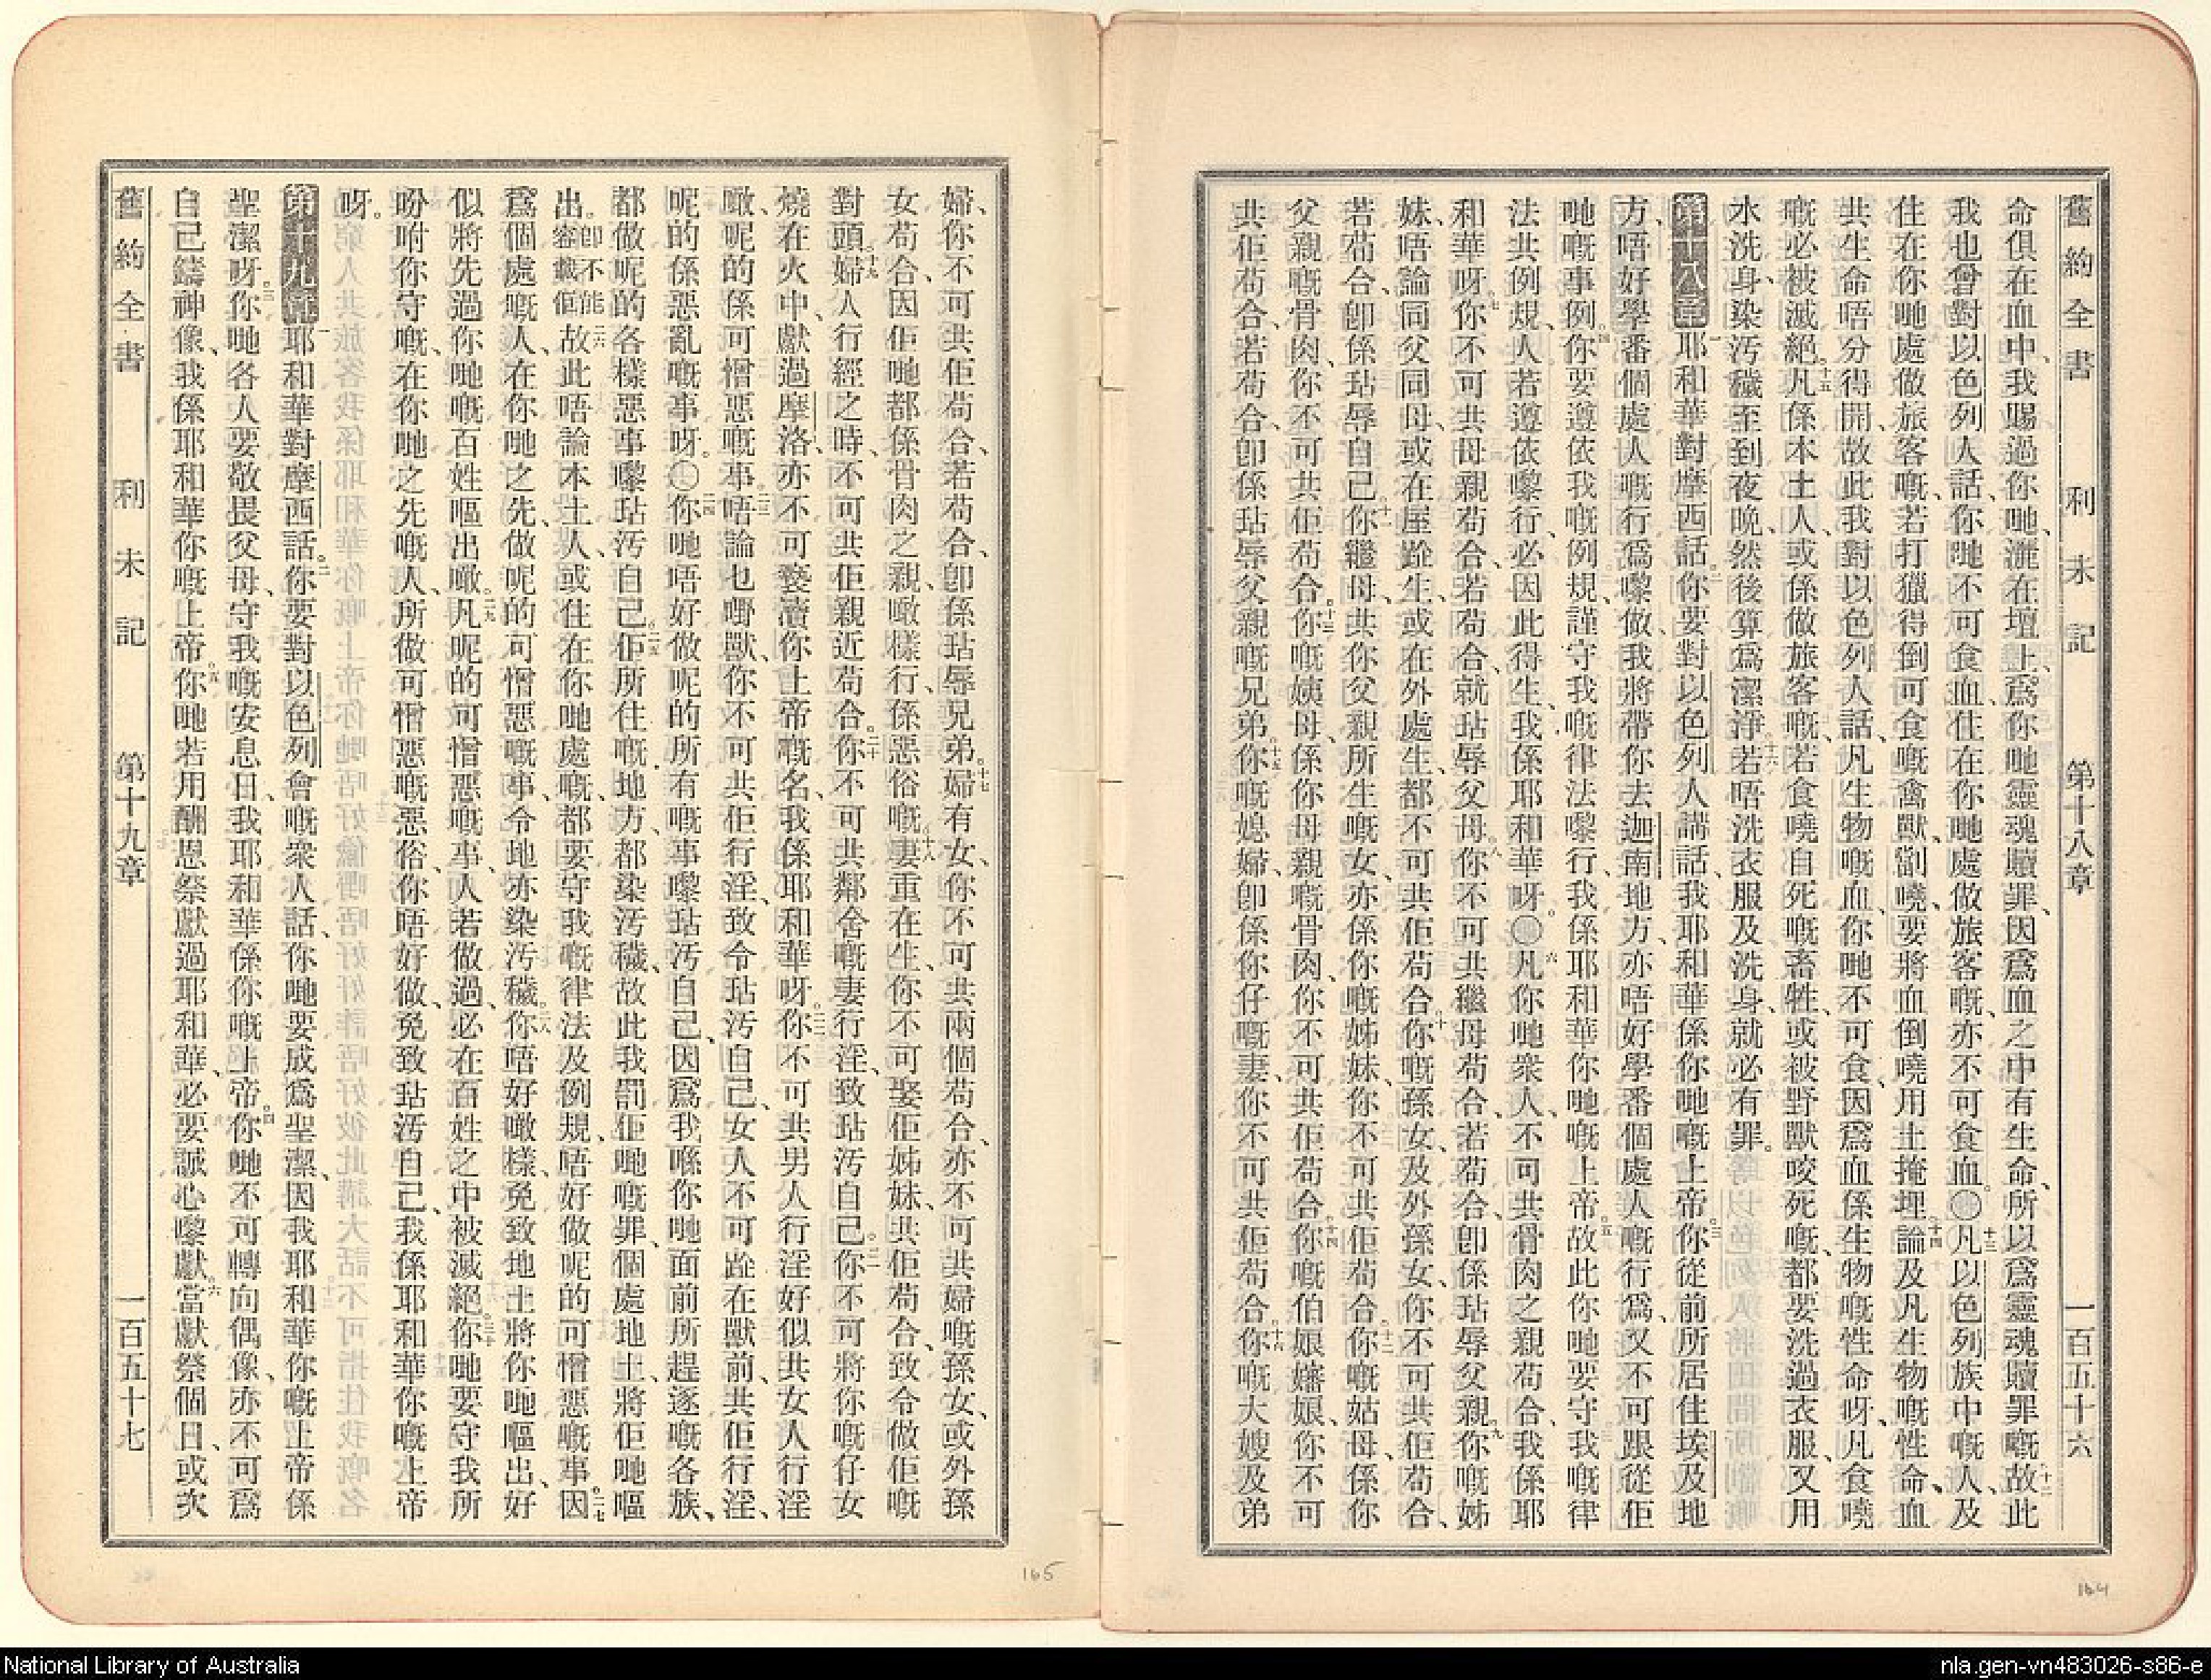 舊約全書　利未記　第十八章　一百五十六
命俱在血中、我賜過你哋、灑在壇上、爲你哋靈魂贖罪、因爲血之中有生命、所以爲靈魂贖罪嘅、十二故此
我也曾對以色列人話、你哋不可食血、住在你哋處做旅客嘅、亦不可食血。〇十三凡以色列族中嘅人、及
住在你哋處做旅客嘅、若打獵得倒可食嘅禽獸、劏嘵、要將血倒嘵用土掩埋、十四論及凡生物嘅性命、血
共生命唔分得開、故此我對以色列人話、凡生物嘅血、你哋不可食、因爲血係生物嘅性命呀、凡食嘵
嘅必被滅絕。十五凡係本土人、或係做旅客嘅、若食嘵自死嘅畜牲、或被野獸咬死嘅、都要洗過衣服、又用
水洗身、染汚穢至到夜晩、然後算爲潔淨。十六若唔洗衣服及洗身、就必有罪。
第十八章一耶和華對摩西話、二你要對以色列人講話、我耶和華係你哋嘅上帝。三你從前所居住埃及地
方、唔好學番個處人嘅行爲嚟做、我將帶你去迦南地方、亦唔好學番個處人嘅行爲、又不可跟從佢
哋嘅事例。四你要遵依我嘅例規、謹守我嘅律法嚟行、我係耶和華你哋嘅上帝。五故此你哋要守我嘅律
法共例規、人若遵依嚟行、必因此得生、我係耶和華呀。〇六凡你哋衆人、不可共骨肉之親苟合、我係耶
和華呀。七你不可共母親苟合、若苟合、就玷辱父母。八你不可共繼母苟合、若苟合、卽係玷辱父親。九你嘅姊
妹、唔論同父同母、或在屋跧生、或在外處生、都不可共佢苟合。十你嘅孫女、及外孫女、你不可共佢苟合、
若苟合、卽係玷辱自己。十一你繼母、共你父親所生嘅女、亦係你嘅姊妹、你不可共佢苟合。十二你嘅姑母、係你
父親嘅骨肉、你不可共佢苟合。十三你嘅姨母、係你母親嘅骨肉、你不可共佢苟合。十四你嘅伯娘嬸娘、你不可
共佢苟合、若苟合、卽係玷辱父親嘅兄弟。十五你嘅媳婦、卽係你仔嘅妻、你不可共佢苟合。十六你嘅大嫂及弟
婦、你不可共佢苟合、若苟合、卽係玷辱兄弟。十七婦有女、你不可共兩個苟合、亦不可共婦嘅孫女、或外孫
女苟合、因佢哋都係骨肉之親、噉樣行、係惡俗嘅。十八妻重在生、你不可娶佢姊妹、共佢苟合、致令做佢嘅
對頭。十九婦人行經之時、不可共佢親近苟合。二十你不可共鄰舍嘅妻行淫、致玷汚自己。二一你不可將你嘅仔女
燒在火中、獻過摩洛、亦不可褻瀆你上帝嘅名、我係耶和華呀。二二你不可共男人行淫、好似共女人行淫
噉、呢的係可憎惡嘅事。二三唔論乜嘢獸、你不可共佢行淫、致令玷汚自己、女人不可跧在獸前、共佢行淫、
呢的係惡亂嘅事呀。〇二四你哋唔好做呢的所有嘅事嚟玷汚自己、因爲我喺你哋面前所趕逐嘅各族、
都做呢的各樣惡事嚟玷汚自己。二五佢所住嘅地方、都染汚穢、故此我罰佢哋嘅罪、個處地土、將佢哋嘔
出。卽不能容載佢二六故此唔論本土人、或住在你哋處嘅、都要守我嘅律法及例規、唔好做呢的可憎惡嘅事。二七因
爲個處嘅人、在你哋之先、做呢的可憎惡嘅事、令地亦染汚穢。二八你唔好噉樣、免致地土將你哋嘔出、好
似將先過你哋嘅百姓嘔出噉。二九凡呢的可憎惡嘅事、人若做過、必在百姓之中被滅絕。三十你哋要守我所
吩咐你守嘅、在你哋之先嘅人、所做可憎惡嘅惡俗、你唔好做、免致玷汚自己、我係耶和華你嘅上帝
呀。
第十九章一耶和華對摩西話。二你要對以色列會嘅衆人話、你哋要成爲聖潔、因我耶和華你嘅上帝係
聖潔呀。三你哋各人要敬畏父母、守我嘅安息日、我耶和華係你嘅上帝。四你哋不可轉向偶像、亦不可爲
自己鑄神像、我係耶和華你嘅上帝。五你哋若用酬恩祭獻過耶和華、必要誠心嚟獻。六當獻祭個日、或次
舊約全書　利未記　第十九章　一百五十七
165
164
National Library of Australia
nla.gen-vn483026-s86-e